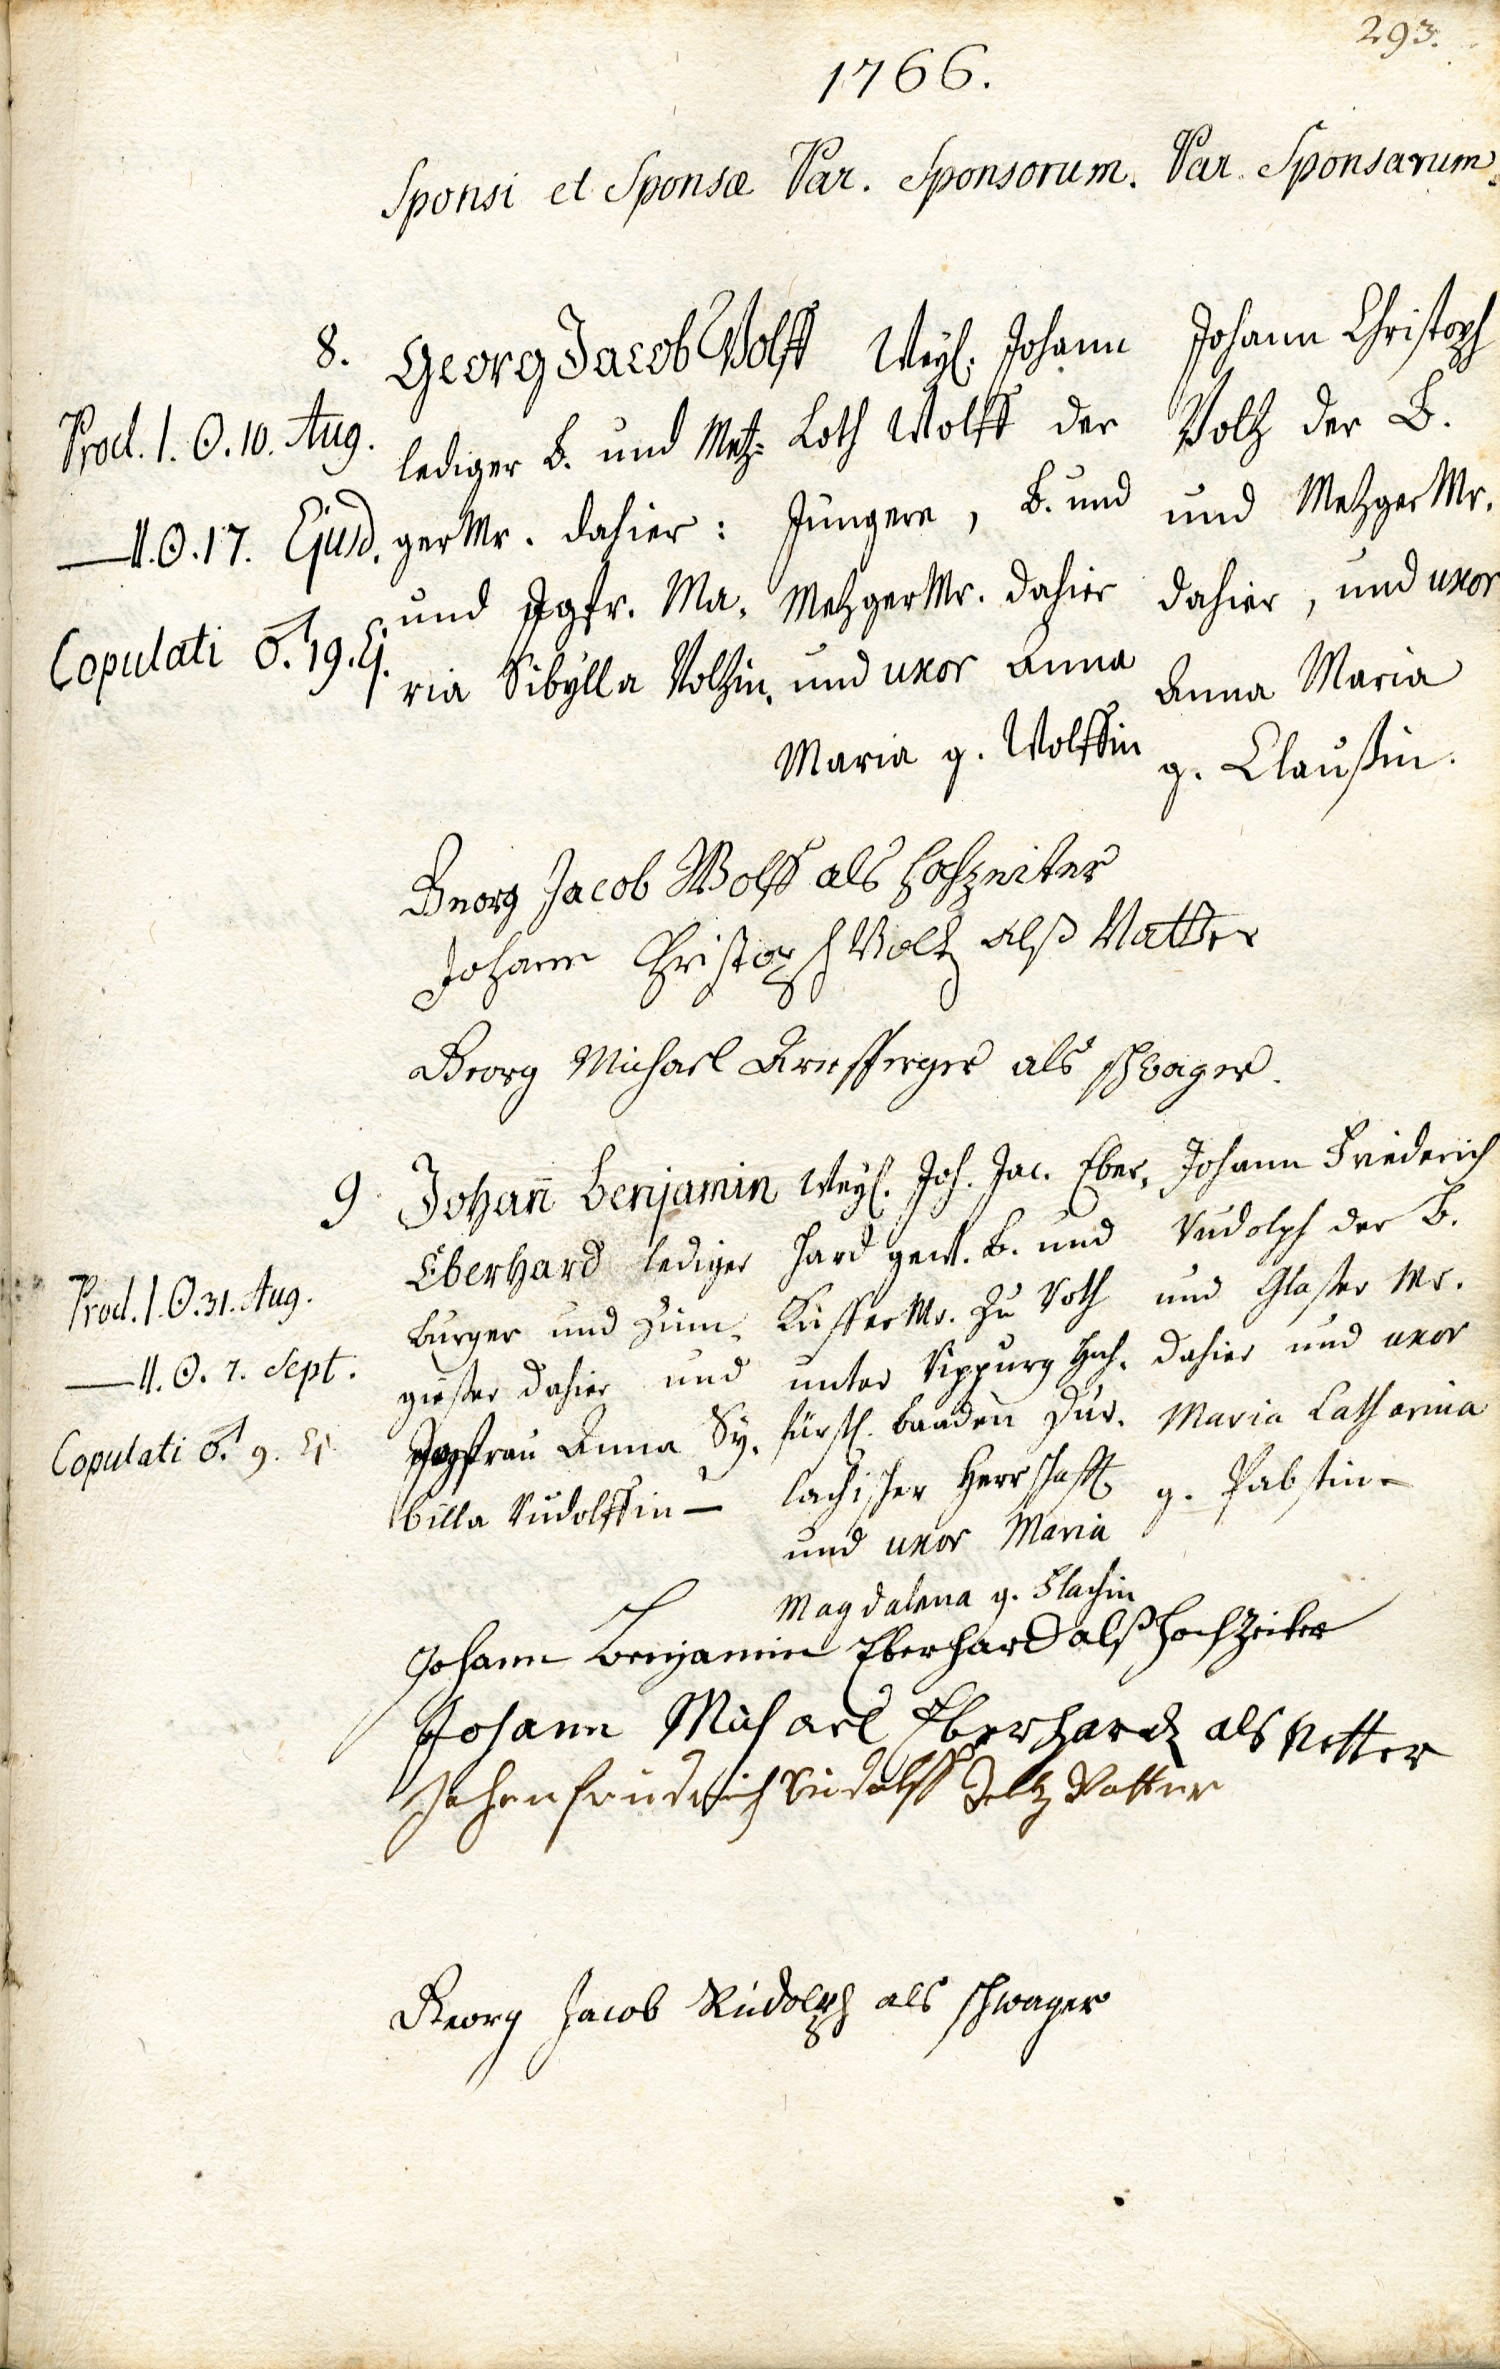 293.
1766.
Sponsi et Sponsæ Par. Sponsorum. Par. Sponsarum.
8.
Procl. I. ☉. 10. Aug.
— II. ☉. 17. Ejusd.
Copulati ♂. 19. Ej.
Georg Jacob Wolff
lediger B. und Metz=
ger Mr. dahier:
und Jgfr. Ma,
ria Sibÿlla Voltzin,
Weyl. Johann
Loth Wolff der
Jüngere, B. und
Metzger Mr. dahier
und uxor Anna
Maria g. Wolffin
Johann Christoph
Voltz der B.
und Metzger Mr.
dahier, und uxor
Anna Maria
g. Claußin.
Georg Jacob Wolff als hochzeiter
Johann Christoph Voltz alß Vatter
Georg Michael als schwager.
9
Procl. I. ☉. 31. Aug.
— II. ☉. 7. Sept.
Copulati ♂. 9. Ej.
Johan̄ Benjamin
Eberhard lediger
burger und Zinn,
gießer dahier und
Jgfrau Anna Sÿ,
billa Rudolffin —
Weyl. Joh. Jac. Eber,
hard gew. B. und
Küffer Mr. zu Roth
unter Rippurg Hoch,
fürstl. Baaden Dur,
lachischer Herrschafft
und uxor Maria
Magdalena g. Flachin
Johann Friederich
Rudolph der B.
und Glaßer Mr.
dahier und uxor
Maria Catharina
g. Pabstin —
Johann Benjamin Eberhard alß hochzeiter
Johann Michael Eberhardt als Vetter
Johan fridrich Rudolff Vatter
Georg Jacob Rudolph als schwager